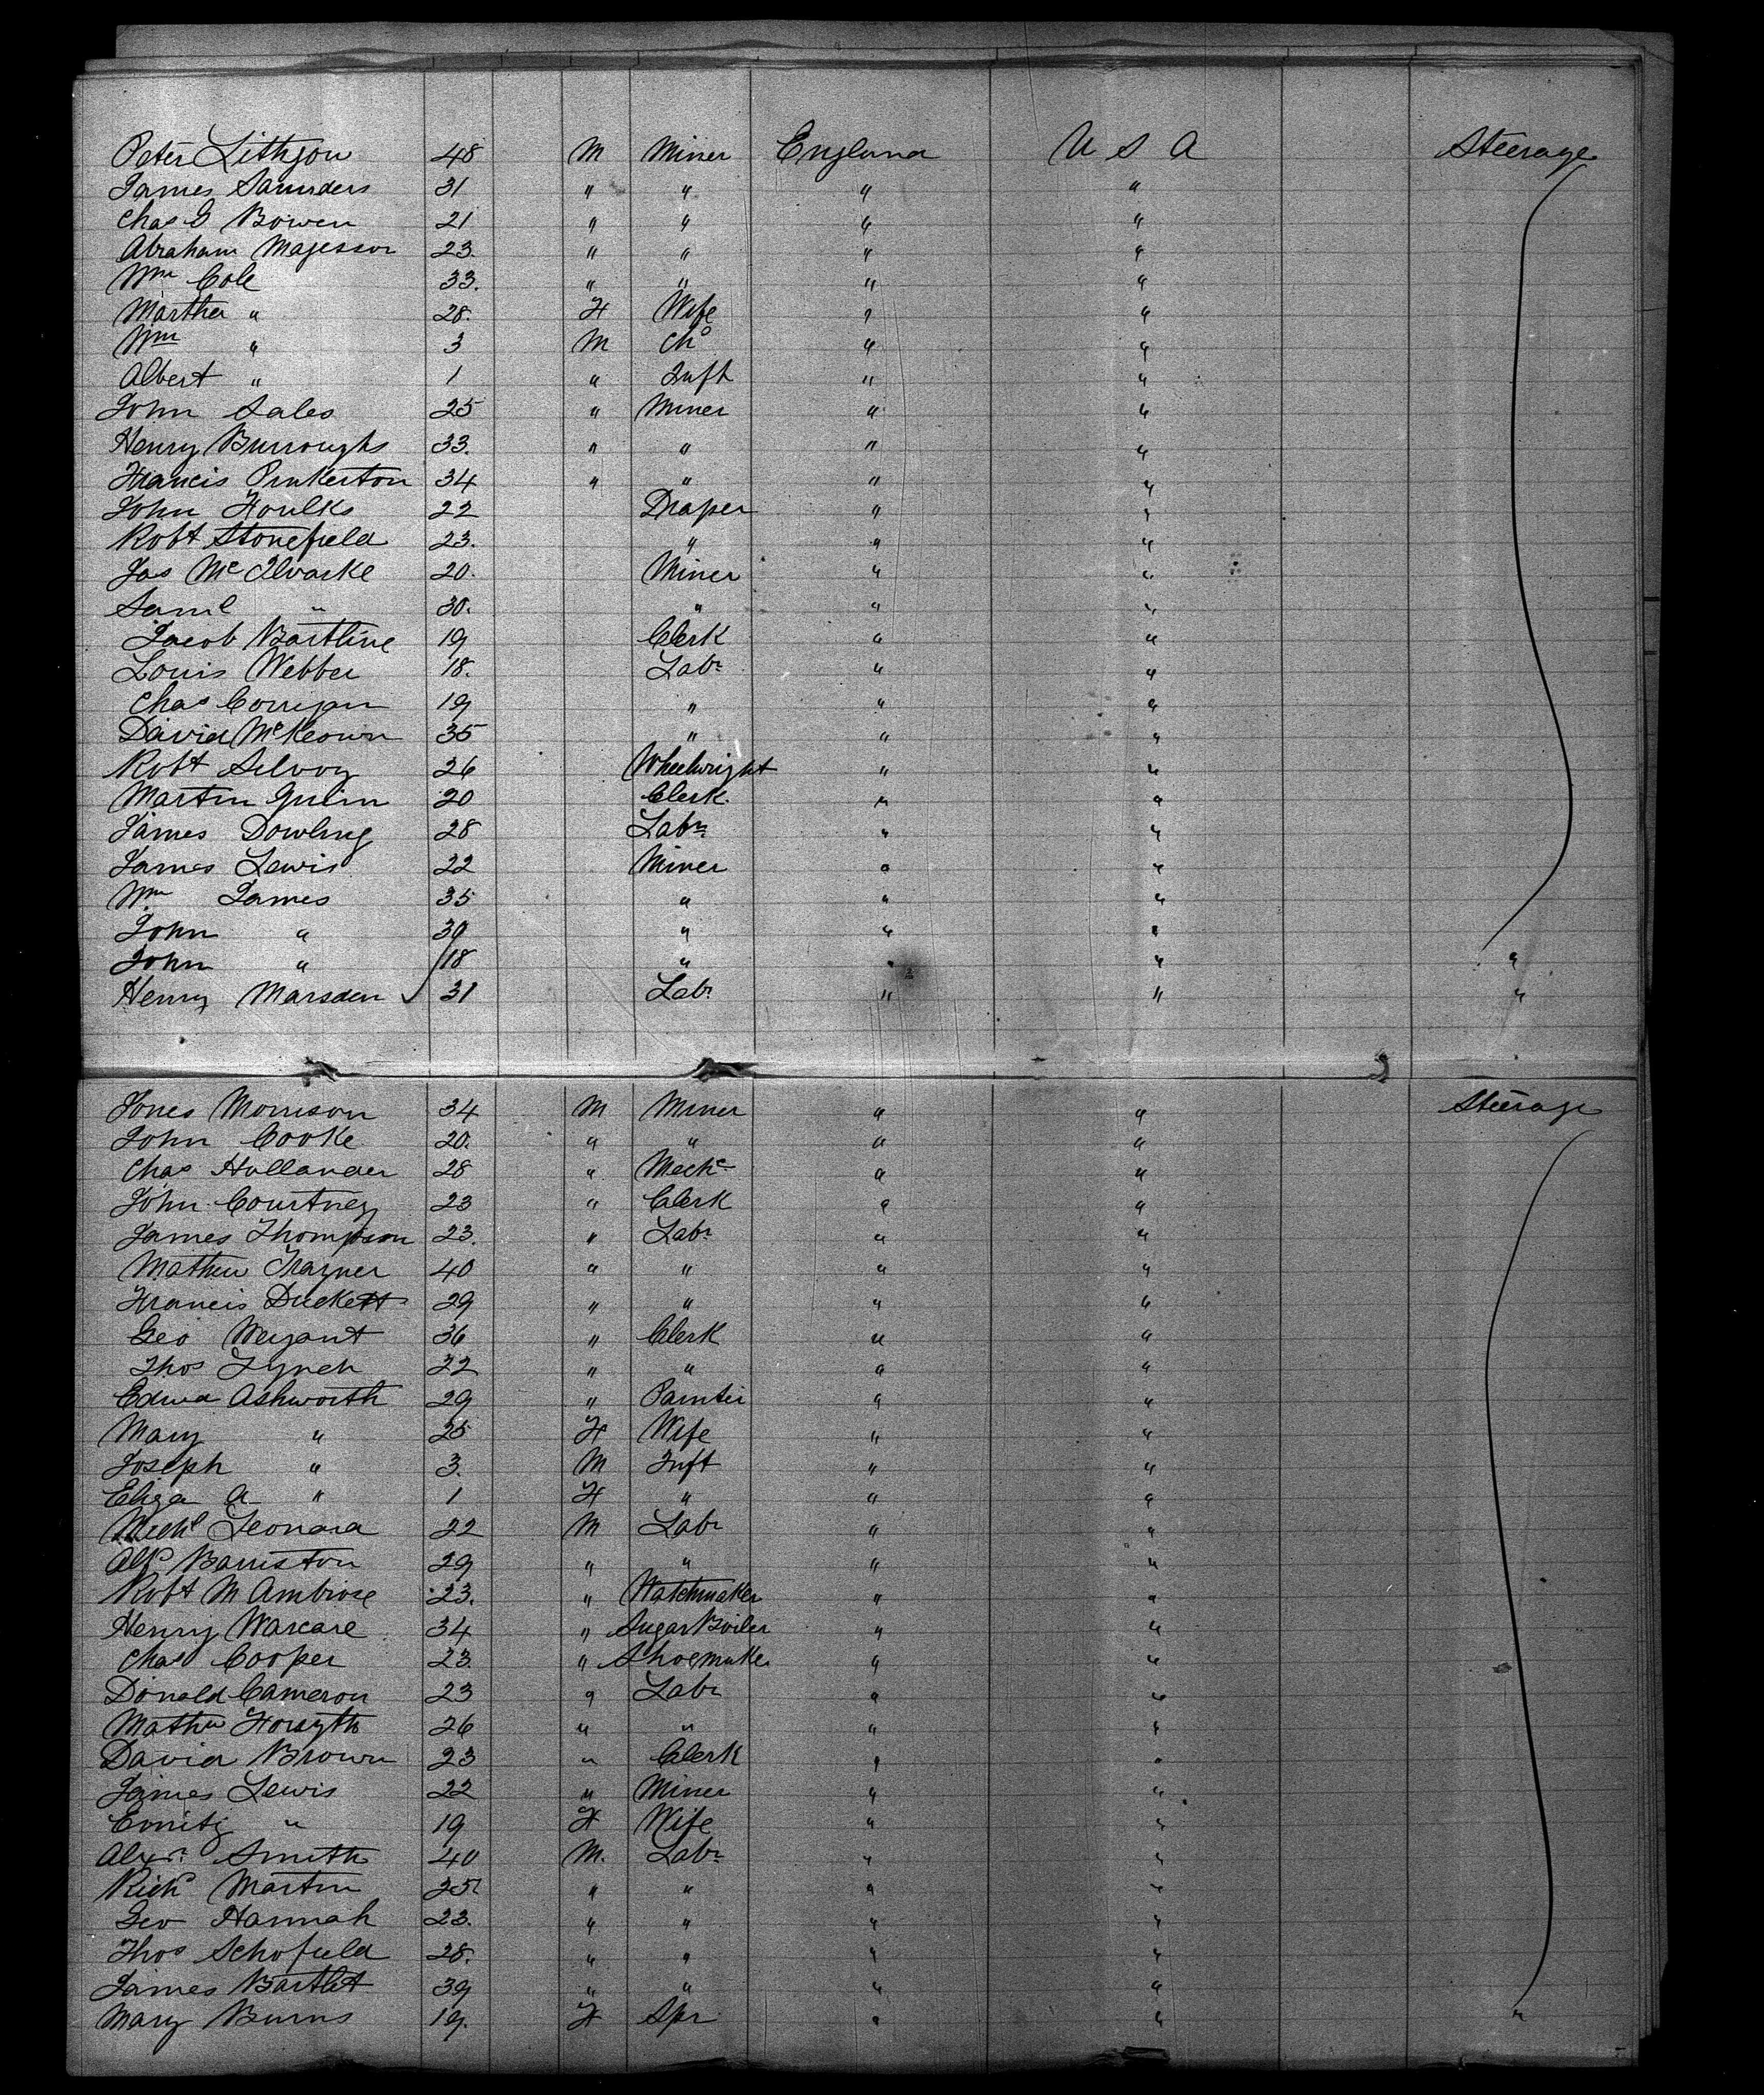 Peter Lithgow 48 M Miner England U S A Steerage
James Saunders 31 " " " "
Chas G Bowen 21 " " " "
Abraham Majesson 23. " " " "
Wm Cole 33. " " " "
Martha " 28. F Wife " "
Wm " 3 M Chd " "
Albert " 1 " Inft " "
John Sales 25 " Miner " "
Henry Burroughs 33. " " " "
Francis Pinkerton 34 " " " "
John Foulks 22 Draper " "
Robt Stonefield 23. " " "
Jas Mc 20. Miner " "
Saml " 30. " " "
Jacob Bartline 19 Clerk " "
Louis Webber 18. Labr " "
Chas Corrigan 19 " " "
David McKeown 35 " " "
Robt Selvoy 26 Wheelwright " "
Martin Quinn 20 Clerk. " "
James Dowling 28 Labr " "
James Lewis 22 Miner " "
Wm James 35 " " "
John " 30 " " "
John " 18 " " " "
Henry Marsden 31 Labr " " "
Jones Morrison 34 M Miner " " Steerage
John Cooke 20. " " " "
Chas Hollander 28 " Mechc " "
John Courtney 23 " Clerk " "
James Thompson 23. " Labr " "
Mathew Trayner 40 " " " "
Francis Duckett 29 " " " "
Geo Weyant 36 " Clerk " "
Thos Lynch 22 " " " "
Edwd Ashworth 29 " Painter " "
Mary " 25 F Wife " "
Joseph " 3. M Inft " "
Eliza A " 1 F " " "
Michl Leonard 22 M Labr " "
Alf Baniston 29 " " " "
Robt M Ambrose 23. " Watchmaker " "
Henry Warcare 34 " Sugar Boiler " "
Chas Cooper 23. " Shoemaker " "
Donald Cameron 23 " Labr " "
Mathw Forsyth 26 " " " "
David Brown 23 " Clerk " "
James Lewis 22 " Miner " "
Emily " 19 F Wife " "
Alexr Smith 40 M. Labr " "
Richd Martin 25 " " " "
Geo Hannah 23. " " " "
Thos Schofield 28. " " " "
James Bartlet 39 " " " "
Mary Burns 19. F Spr " " "